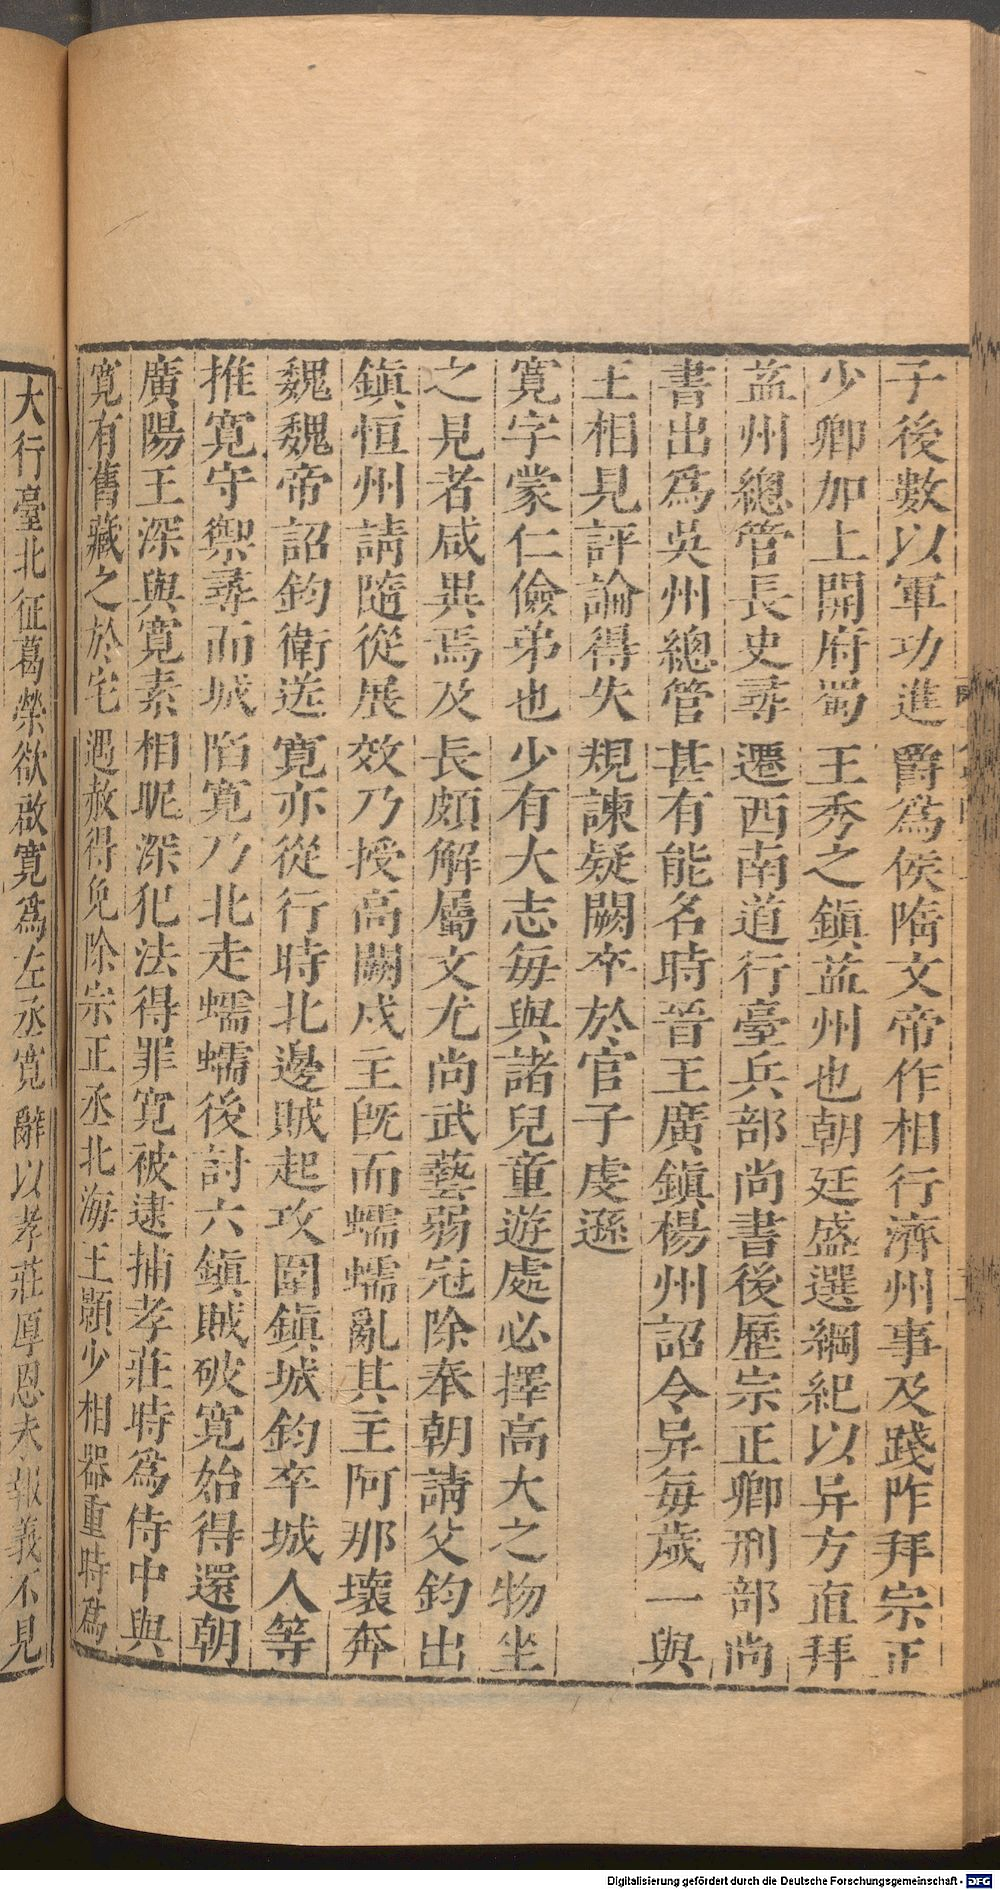 子後數以軍功進爵爲侯隋文帝作相行濟州事及踐阼拜宗正
少卿加上開府蜀王秀之鎮益州也朝廷盛選綱紀以异方直拜
益州總管長史尋遷西南道行臺兵部尚書後歷宗正卿刑部尚
書出爲吳州總管甚有能名時晉王廣鎮楊州詔令异每歲一與
王相見評論得失規諫疑闕卒於官子虔遜
寬字蒙仁儉弟也少有大志每與諸兒童遊處必擇高大之物坐
之見者咸異焉及長頗解屬文尤尚武藝弱冠除奉朝請父鈞出
鎮恒州請隨從展效乃授高闕戍主旣而蠕蠕亂其主阿那壞奔
魏魏帝詔鈞衛送寬亦從行時北邊賊起攻圍鎮城鈞卒城人等
推寬守禦尋而城陷寬乃北走蠕蠕後討六鎮賊破寬始得還朝
廣陽王深與寬素相昵深犯法得罪寬被逮捕孝莊時爲侍中與
寬有舊藏之於宅遇赦得免除宗正丞北海王顥少相器重時爲
大行臺北征葛榮欲啟寬爲左丞寬辭以孝莊厚恩未報義不見
Digitalisierung gefördert durch die Deutsche Forschungsgemeinschaft - DFG